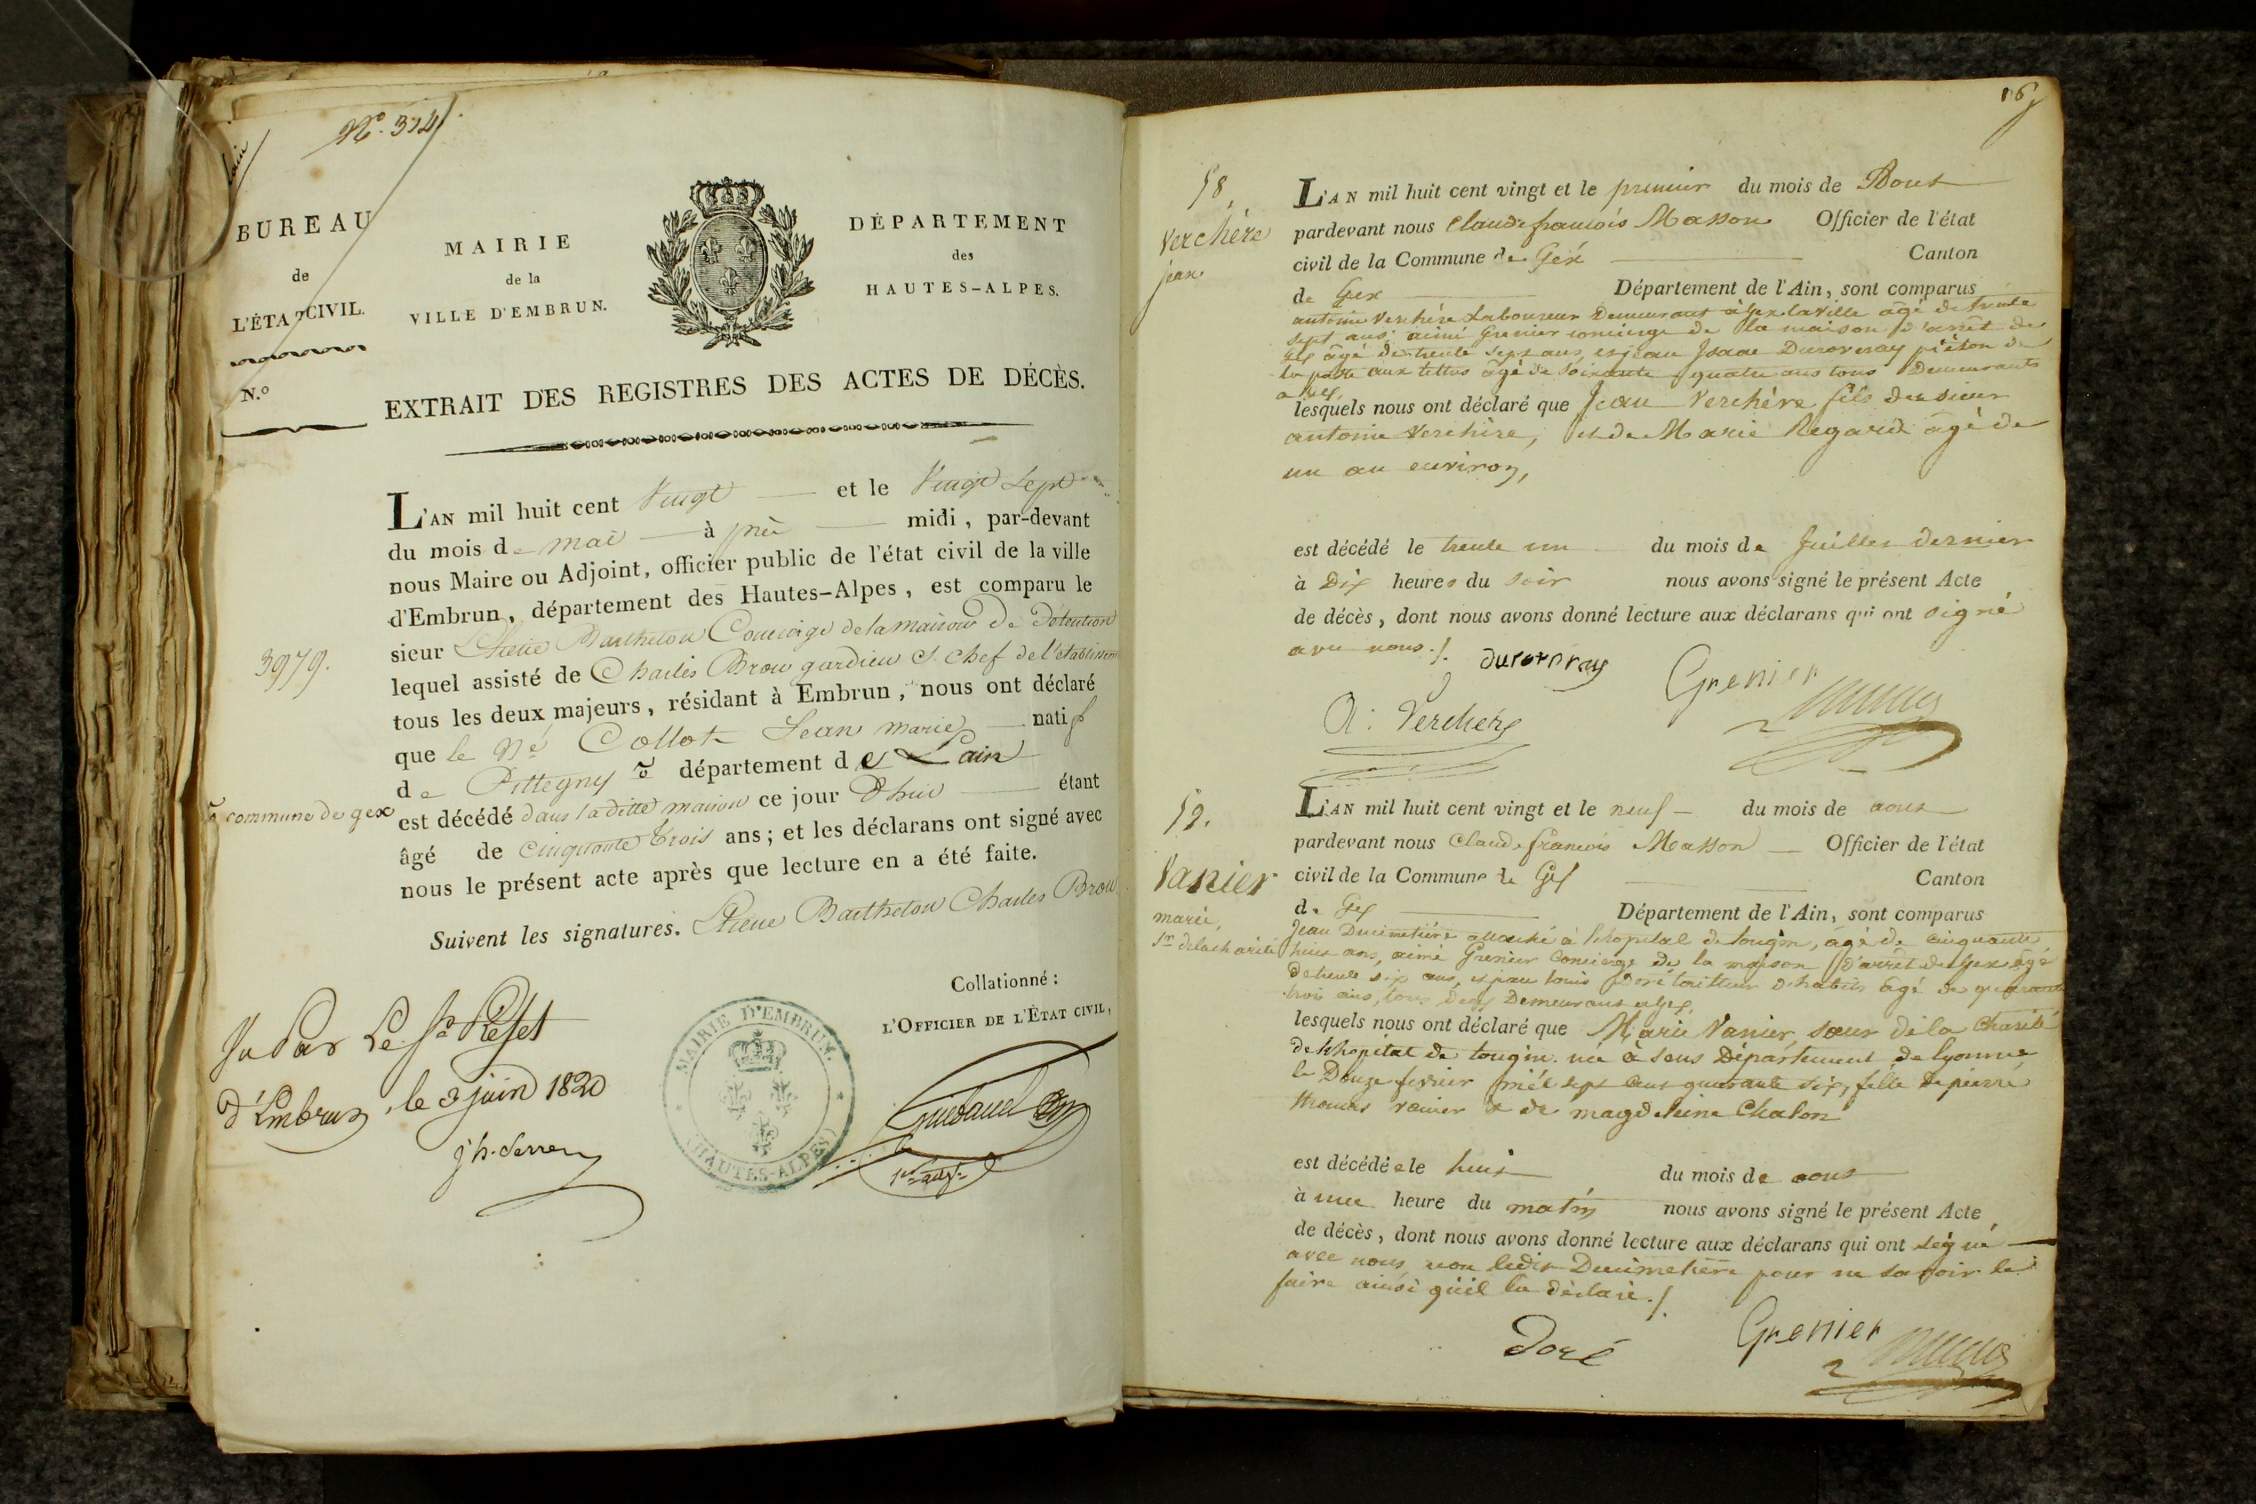 N.º 314
BUREAU
de
L'ÉTAT CIVIL.
N.º
MAIRIE
de la
VILLE D'EMBRUN.
DÉPARTEMENT
des
HAUTES-ALPES.
EXTRAIT DES REGISTRES DES ACTES DE DÉCÈS.
L'AN mil huit cent Vingt et le Vingt Sept
du mois de mai à près midi, par-devant
nous Maire ou Adjoint, officier public de l'état civil de la ville
d'Embrun, département des Hautes-Alpes, est comparu le
sieur Barthelon Concierge de la maison De Détention
lequel assisté de Charles Brou gardien s. chef de l'etablissem
tous les deux majeurs, résidant à Embrun, nous ont déclaré
que le né Collot Jean marie natif
de Pitegny département de Lain
commune de gex
est décédé dans la ditte maison ce jour d'hui étant
âgé de cinquante trois ans; et les déclarans ont signé avec
nous le présent acte après que lecture en a été faite.
3979.
Suivent les signatures. Barthelon Charles Brou
Collationné :
L'OFFICIER DE L'ÉTAT CIVIL,
Vu Par Le Sr Préfet
d'Embrun, le 3 juin 1820
MAIRIE D'EMBRUN.
(HAUTES-ALPES)
58.
Verchère
jean
L'AN mil huit cent vingt et le premier du mois de Aout
pardevant nous Claude françois Masson Officier de l'état
civil de la Commune de Gex Canton
de Gex Département de l'Ain, sont comparus
antoine Verchère Laboureur Demeurant à Gex la Ville âgé de trente
sept ans, aimé Grenier concierge de la maison d'arrêt de
Gex âgé de trente sept ans, et jean Isaac Duroveray piéton de
la poste aux lettres âgé de soixante quatre ans tous Demeurants
a Gex,
lesquels nous ont déclaré que Jean Verchère fils de sieur
antoine Verchère, et de Marie Regard âgé de
un an environ,
est décédé le trente un du mois de Juillet dernier
à Dix heures du soir nous avons signé le présent Acte
de décès, dont nous avons donné lecture aux déclarans qui ont signé
avec nous ./.
duroveray
Grenier
A: Verchère
59.
Vanier
marie,
sr delacharité
L'AN mil huit cent vingt et le neuf du mois de aout
pardevant nous Claude françois Masson Officier de l'état
civil de la Commune de Gex Canton
de Gex Département de l'Ain, sont comparus
Jean Ducimetière attaché à l'hopital de tougin, âgé de cinquante
huit ans, aimé Grenier Concierge de la maison d'arrêt de Gex âgé
de trente six ans, et jean louis Doré tailleur d'habits âgé de quarante
trois ans, tous Demeurans a Gex,
lesquels nous ont déclaré que Marie Vanier, sœur de la Charité
de l'hopital de tougin née à Sens Département de lyonne
le Douze fevrier mil sept cent quarante six, fille de pierre
thomas vanier & de magdeleine Chalon
est décédée le huit du mois de aout
à une heure du matin nous avons signé le présent Acte
de décès, dont nous avons donné lecture aux déclarans qui ont signé
avec nous, non ledit Ducimetière pour ne savoir le
faire ainsi qu'il l'a déclaré ./.
Doré
Grenier